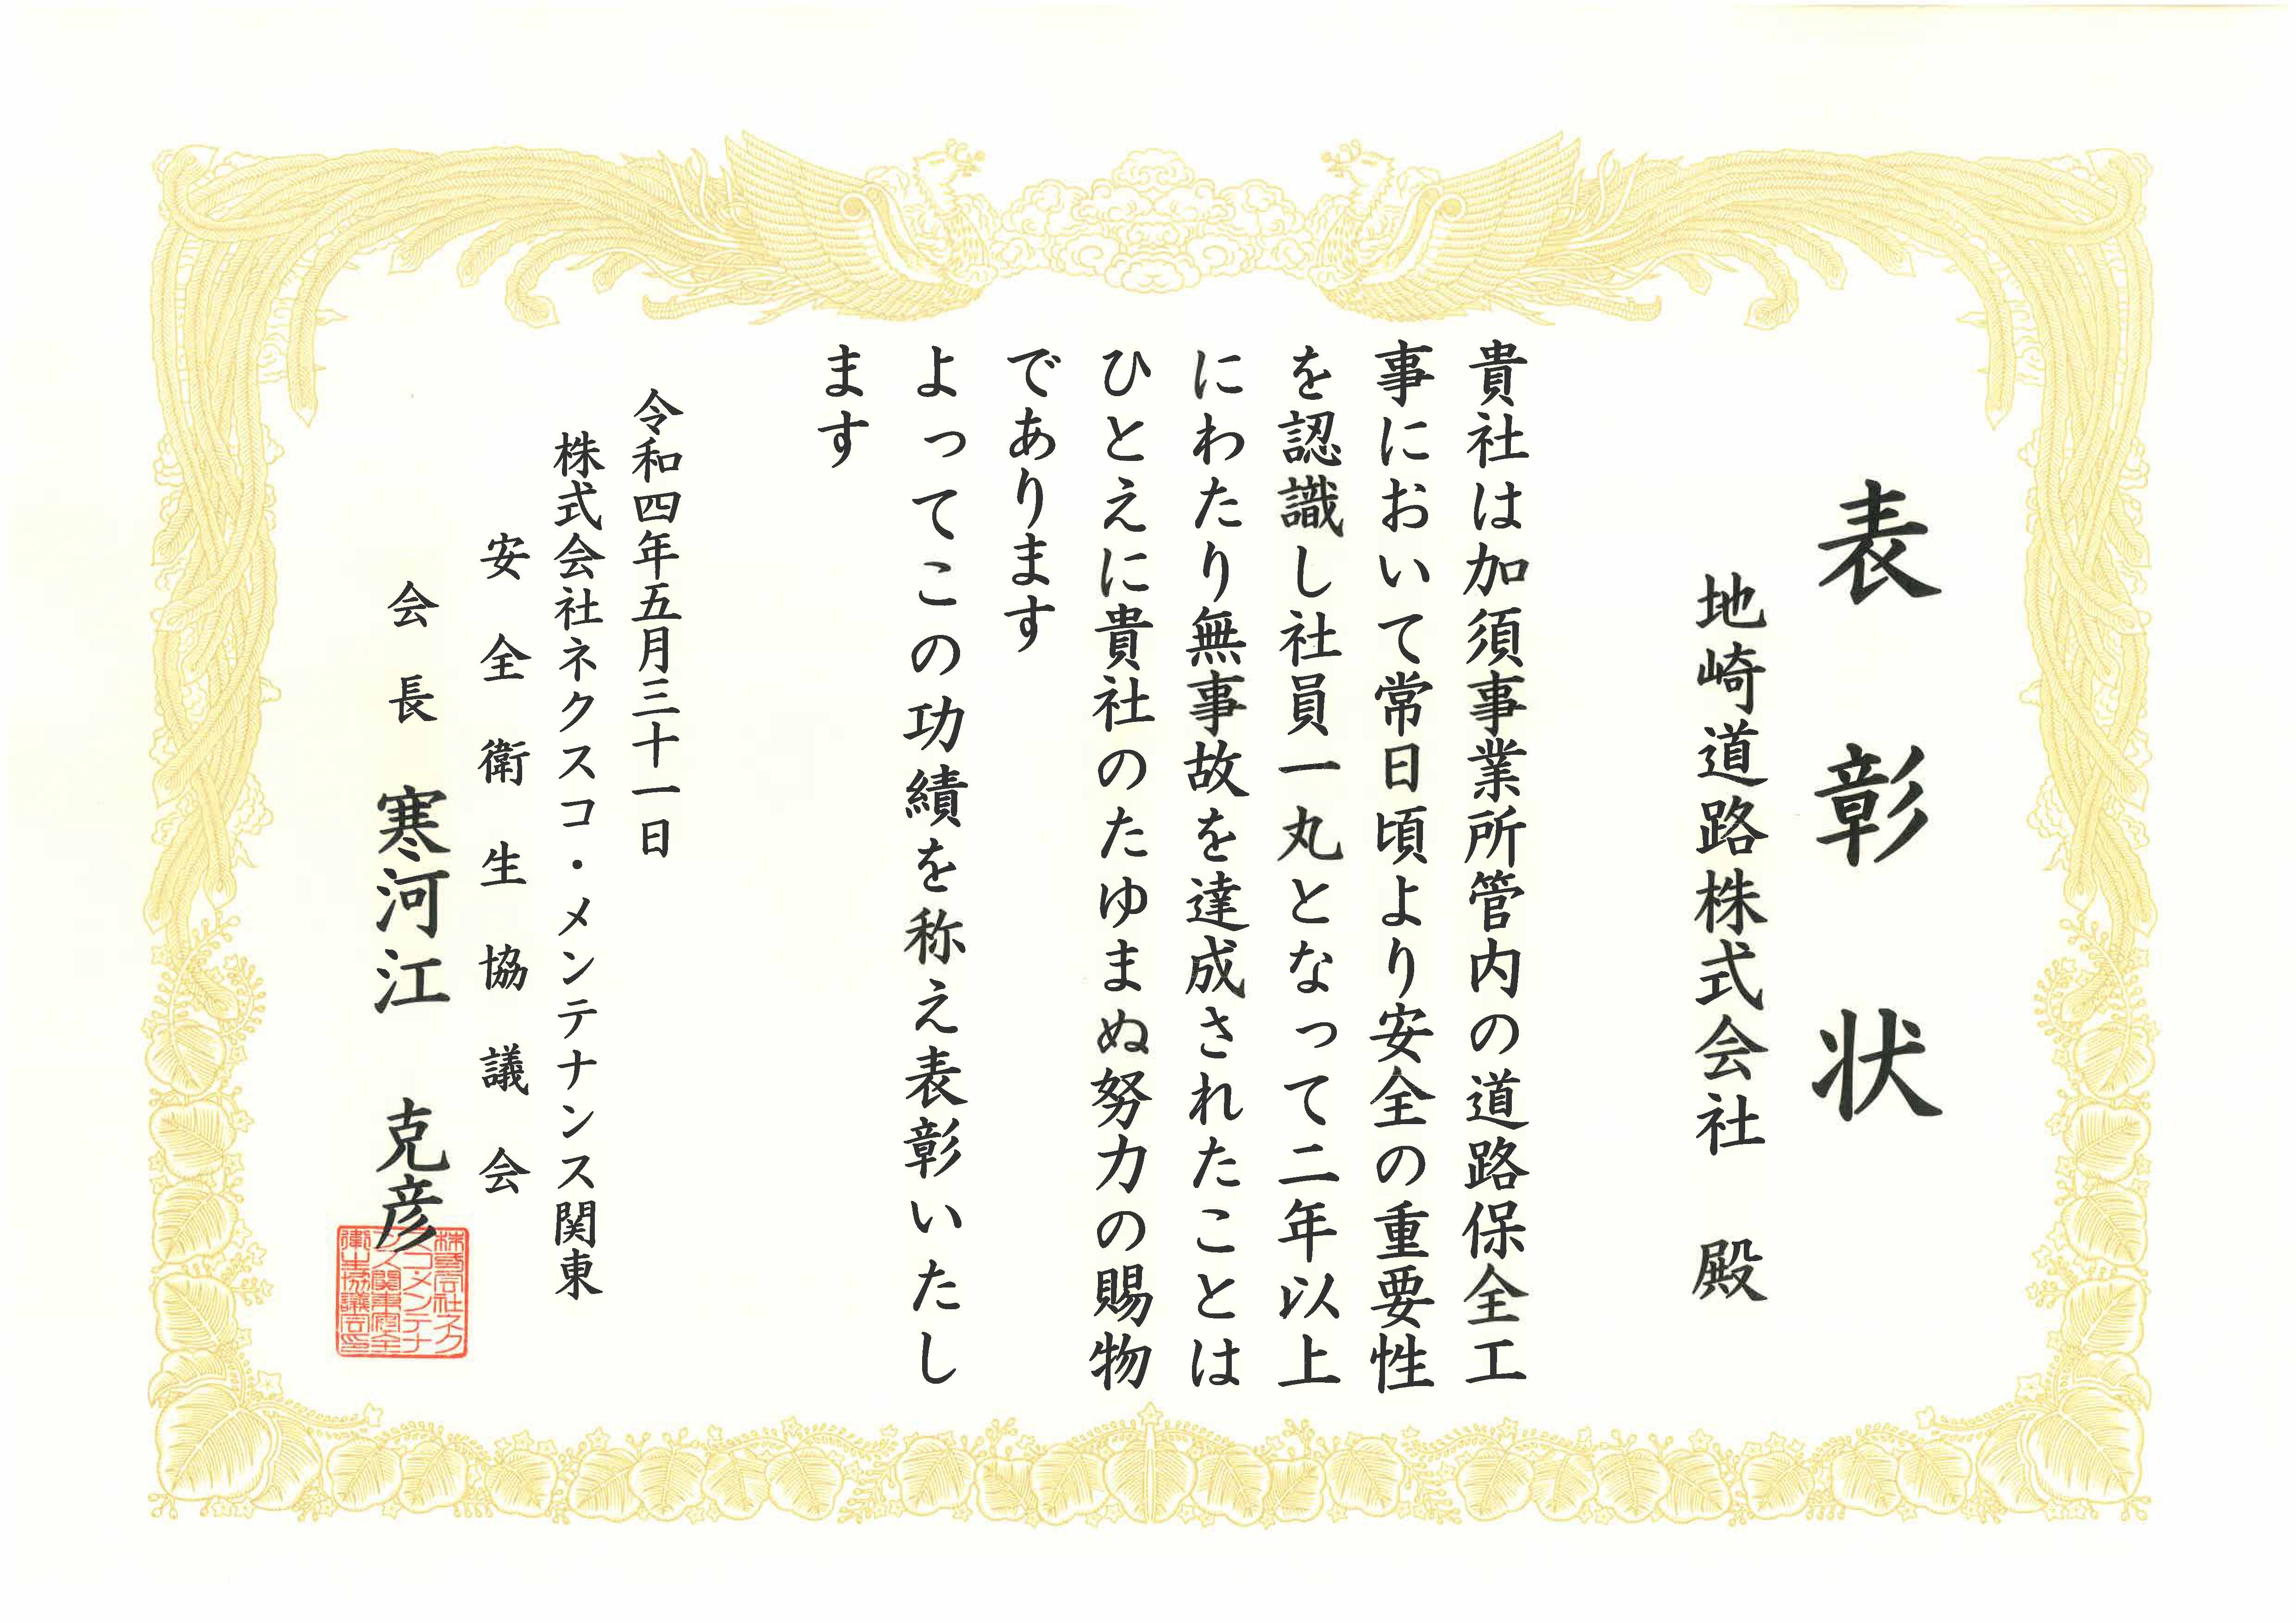 表彰状
地崎道路株式会社 殿
貴社は加須事業所管内の道路保全工
事において常日頃より安全の重要性
を認識し社員一丸となって二年以上
にわたり無事故を達成されたことは
ひとえに貴社のたゆまぬ努力の賜物
であります
よってこの功績を称え表彰いたし
ます
令和四年五月三十一日
株式会社ネクスコ・メンテナンス関東
安全衛生協議会
会長 寒河江 克彦